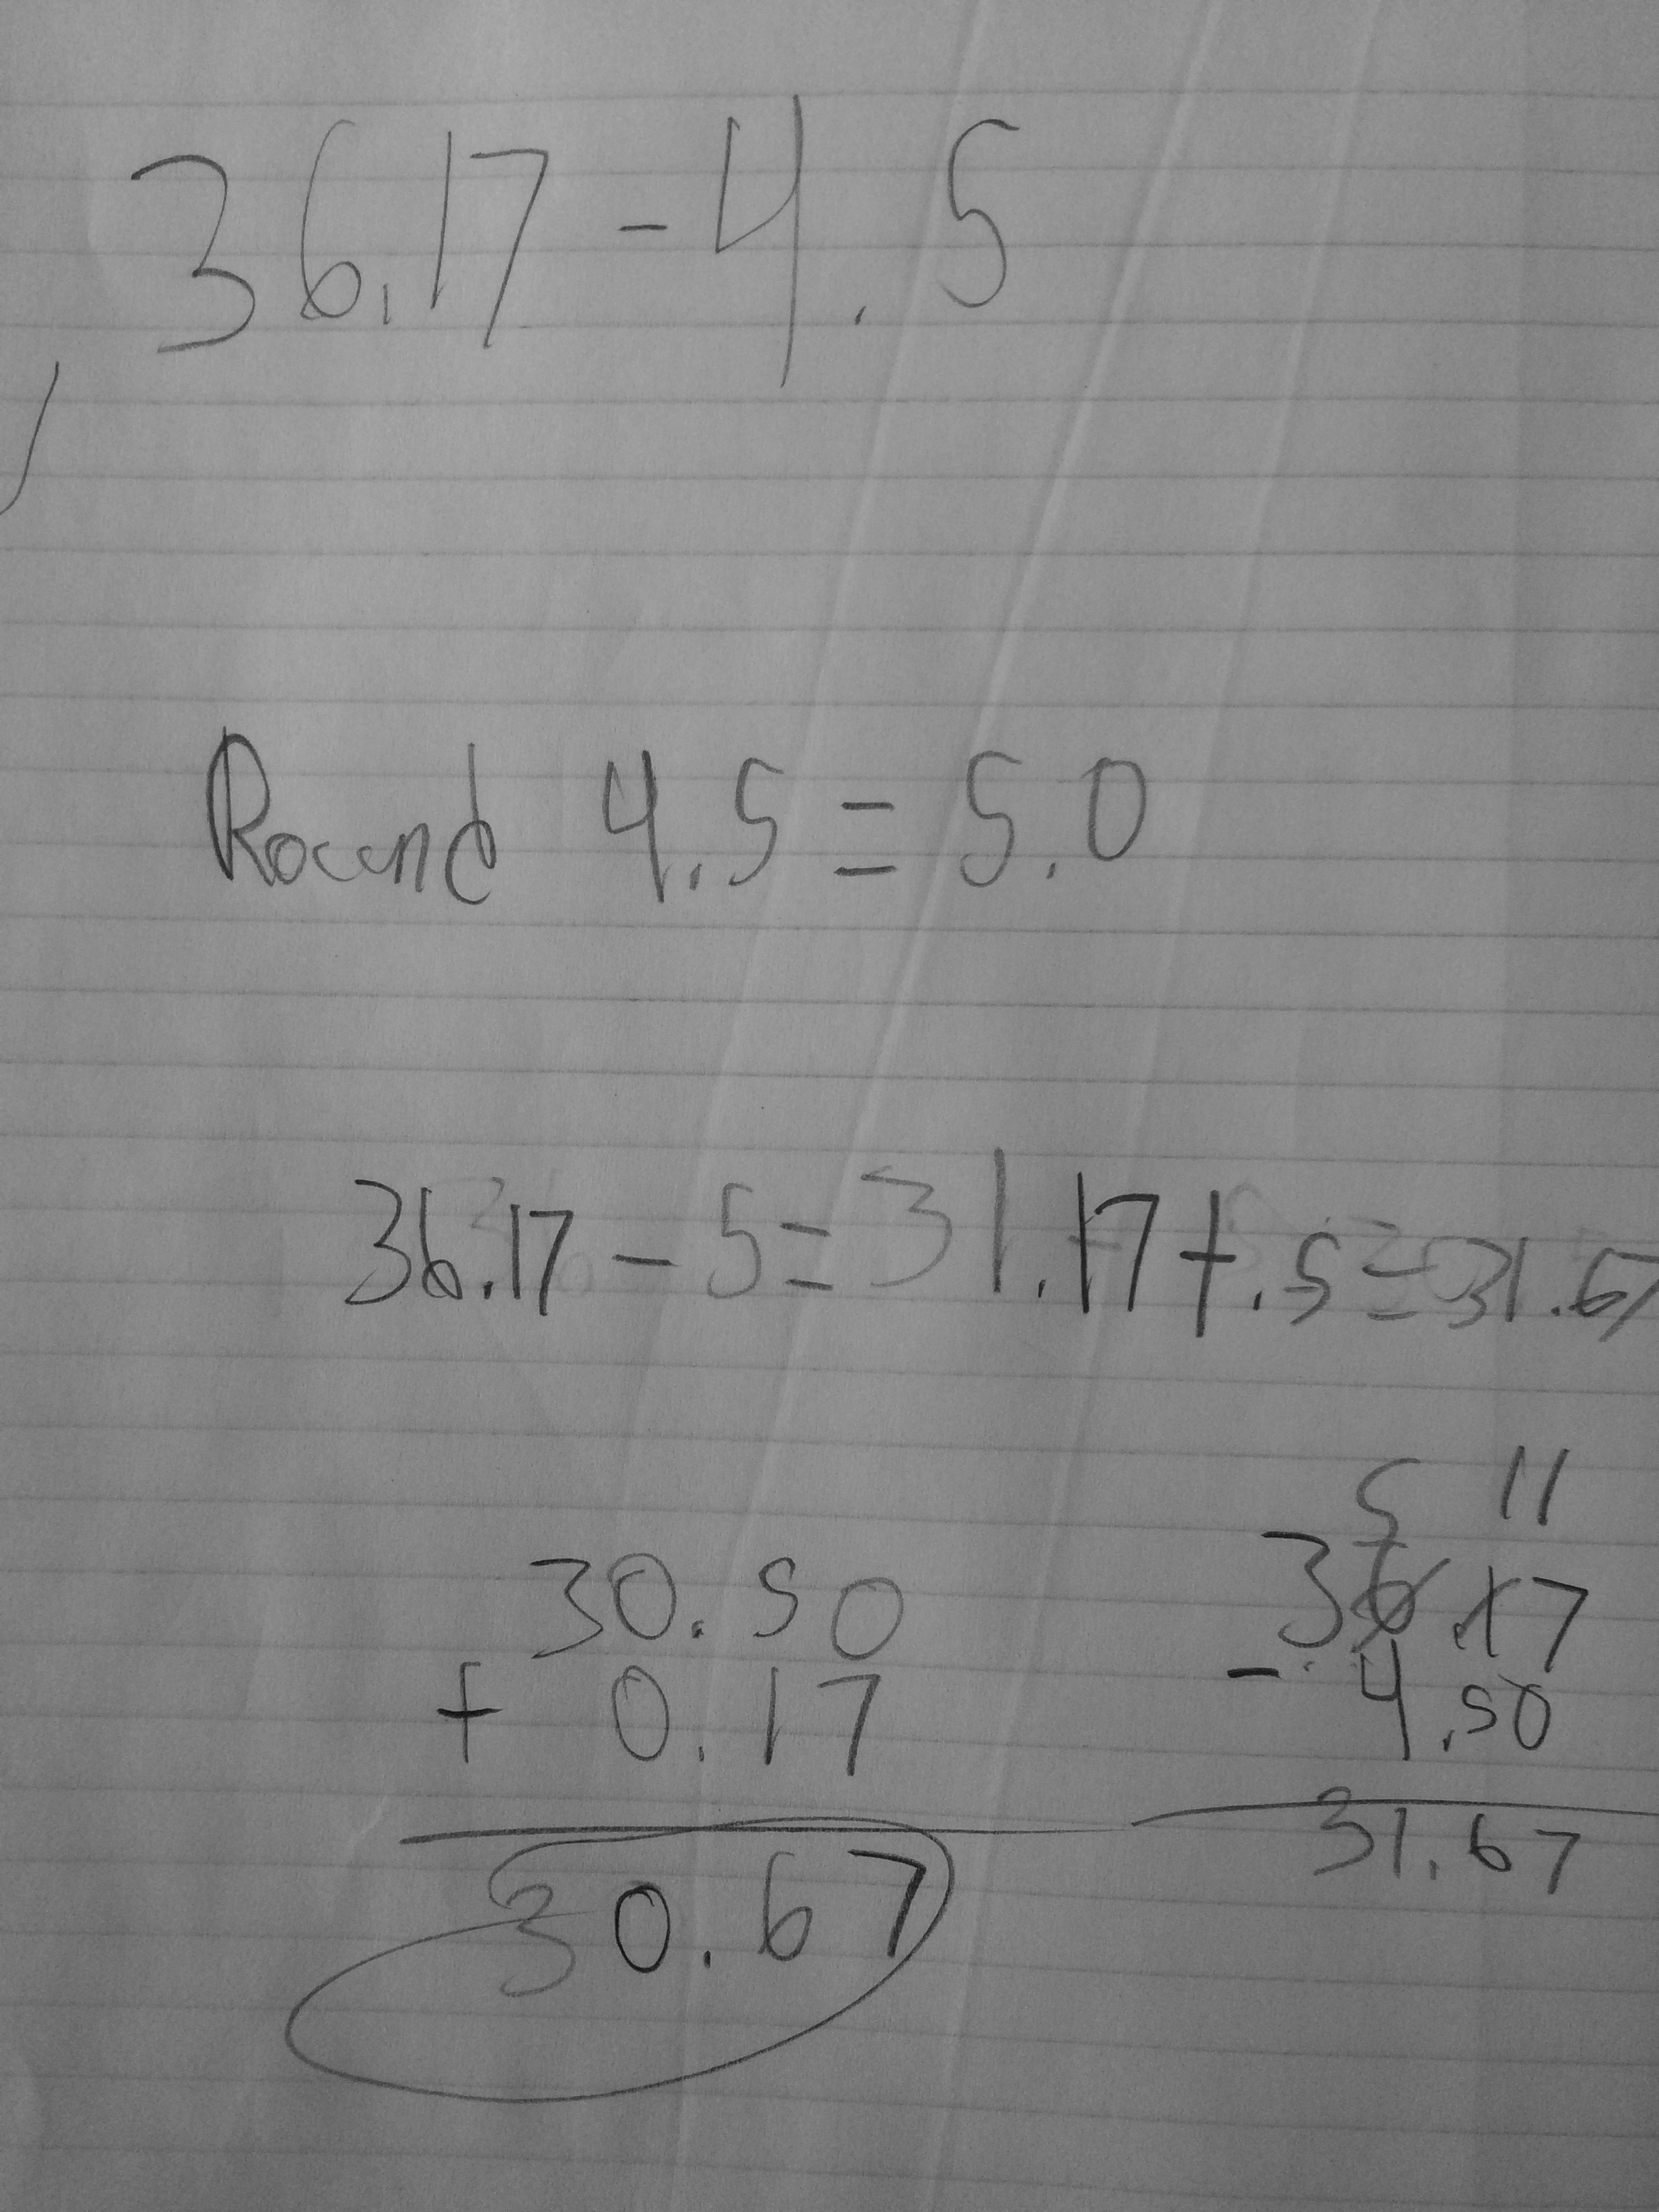 36.17 - 4.5
Round 4.5 = 5.0
36.17 - 5 = 31.17 + .5 = 31.67
30.50
+ 0.17
30.67
5 11
36.17
- 4.50
31.67